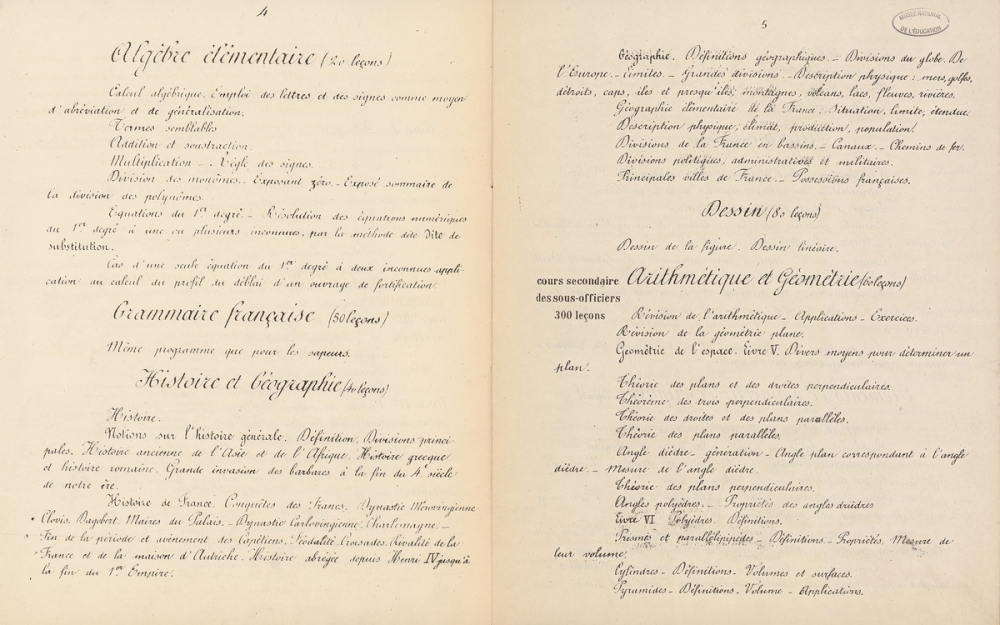 4
Algèbre élémentaire (20 leçons)
Calcul algébrique. Emploi des lettres et des signes comme moyen
d'abréviation et de généralisation.
Termes semblables
Addition et soustraction.
Multiplication - Règle des signes.
Division des monômes. Exposant zéro - Exposé sommaire de
la division des polynômes.
Equations du 1er degré - Résolution des équations numériques
du 1er degré à une ou plusieurs inconnues, par la méthode dite dite de
substitution.
Cas d'une seule équation du 1er degré à deux inconnues appli-
cation au calcul du profil du déblai d'un ouvrage de fortification.
Grammaire française (50 leçons)
Même programme que pour les sapeurs.
Histoire et Géographie (40 leçons)
Histoire.
Notions sur l'histoire générale. Définition. Divisions princi-
pales. Histoire ancienne de l'Asie et de l'Afrique. Histoire grecque
et histoire romaine. Grande invasion des barbares à la fin du 4e siècle
de notre ère.
Histoire de France. Conquêtes des Francs. Dynastie Mérovingienne
Clovis. Dagobert. Maires du Palais. - Dynastie Carlovingienne. Charlemagne. -
Fin de la période et avènement des Capétiens. Féodalité. Croisades. Rivalité de la
France et de la maison d'Autriche. Histoire abrégée depuis Henri IV jusqu'à
la fin du 1er Empire.
5
MUSÉE NATIONAL
DE L'ÉDUCATION
Géographie. Définitions géographiques. - Divisions du globe. De
l'Europe. - Limites - Grandes divisions. - Description physique : mers, golfes,
détroits, caps, iles et presqu'iles, montagnes, volcans, lacs, fleuves, rivières.
Géographie élémentaire de la France. Situation, limite, étendue.
Description physique, climat, production, population.
Divisions de la France en bassins. - Canaux. - Chemins de fer.
Divisions politiques, administratives et militaires.
Principales villes de France. - Possessions françaises.
Dessin (80 leçons)
Dessin de la figure. Dessin linéaire.
cours secondaire
des sous-officiers
300 leçons
Arithmétique et Géométrie (60 leçons)
Révision de l'arithmétique - Applications - Exercices.
Révision de la géométrie plane.
Géométrie de l'espace. Livre V. Divers moyens pour déterminer un
plan.
Théorie des plans et des droites perpendiculaires.
Théorème des trois perpendiculaires.
Théorie des droites et des plans parallèles.
Théorie des plans parallèles.
Angle dièdre - génération - Angle plan correspondant à l'angle
dièdre. - Mesure de l'angle dièdre.
Théorie des plans perpendiculaires.
Angles polyèdres. - Propriétés des angles trièdres
Livre VI Polyèdres. Définitions.
Prismes et parallélépipèdes - Définitions - Propriétés. Mesure de
leur volume.
Cylindres - Définitions - Volumes et surfaces.
Pyramides - Définitions. Volume - Applications.